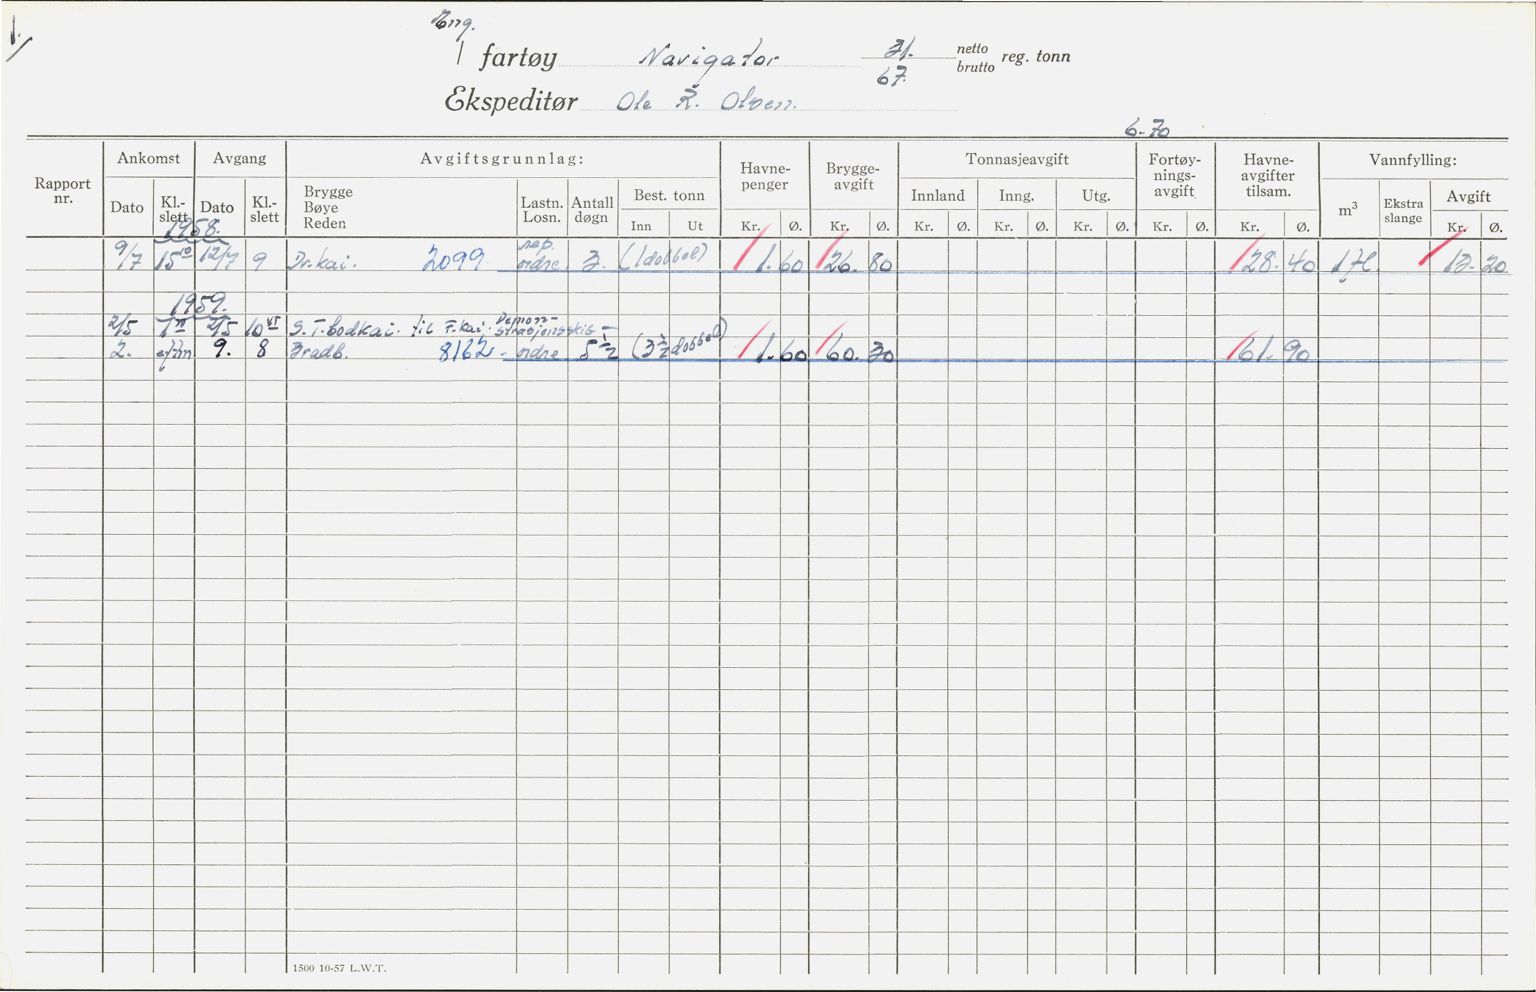 1.
Eng.
1 fartøy Navigator 31. netto
67. brutto reg. tonn
Ekspeditør Ole R. Olsen.
6-70
Rapport nr. Ankomst Avgang Avgiftsgrunnlag: Havne-penger Brygge-avgift Tonnasjeavgift Fortøy-nings-avgift Havne-avgifter tilsam. Vannfylling:
Dato Kl.-slett Dato Kl.-slett Brygge Bøye Reden Lastn. Losn. Antall døgn Best. tonn Innland Inng. Utg. m³ Ekstra slange Avgift
Inn Ut Kr. Ø. Kr. Ø. Kr. Ø. Kr. Ø. Kr. Ø. Kr. Ø. Kr. Ø. Kr. Ø.
1958.
9/7 15¹⁰ 12/7 9 Dr.kai. 2099 rep. ordre 3. (1 dobbel) 1.60 26.80 28.40 13.20
1959.
2/5 2/5 10 S.T.bodkai. til F.kai. Demon-strasjonsskib-
2. 9. 8 Bradb. 8162 - ordre 5½ (3½ dobbel) 1.60 60.30 61.90
1500 10-57 L.W.T.